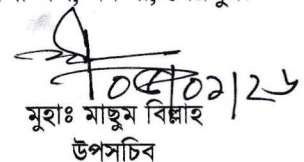 ০৫|০২|২৬
মুহাঃ মাছুম বিল্লাহ
উপসচিব